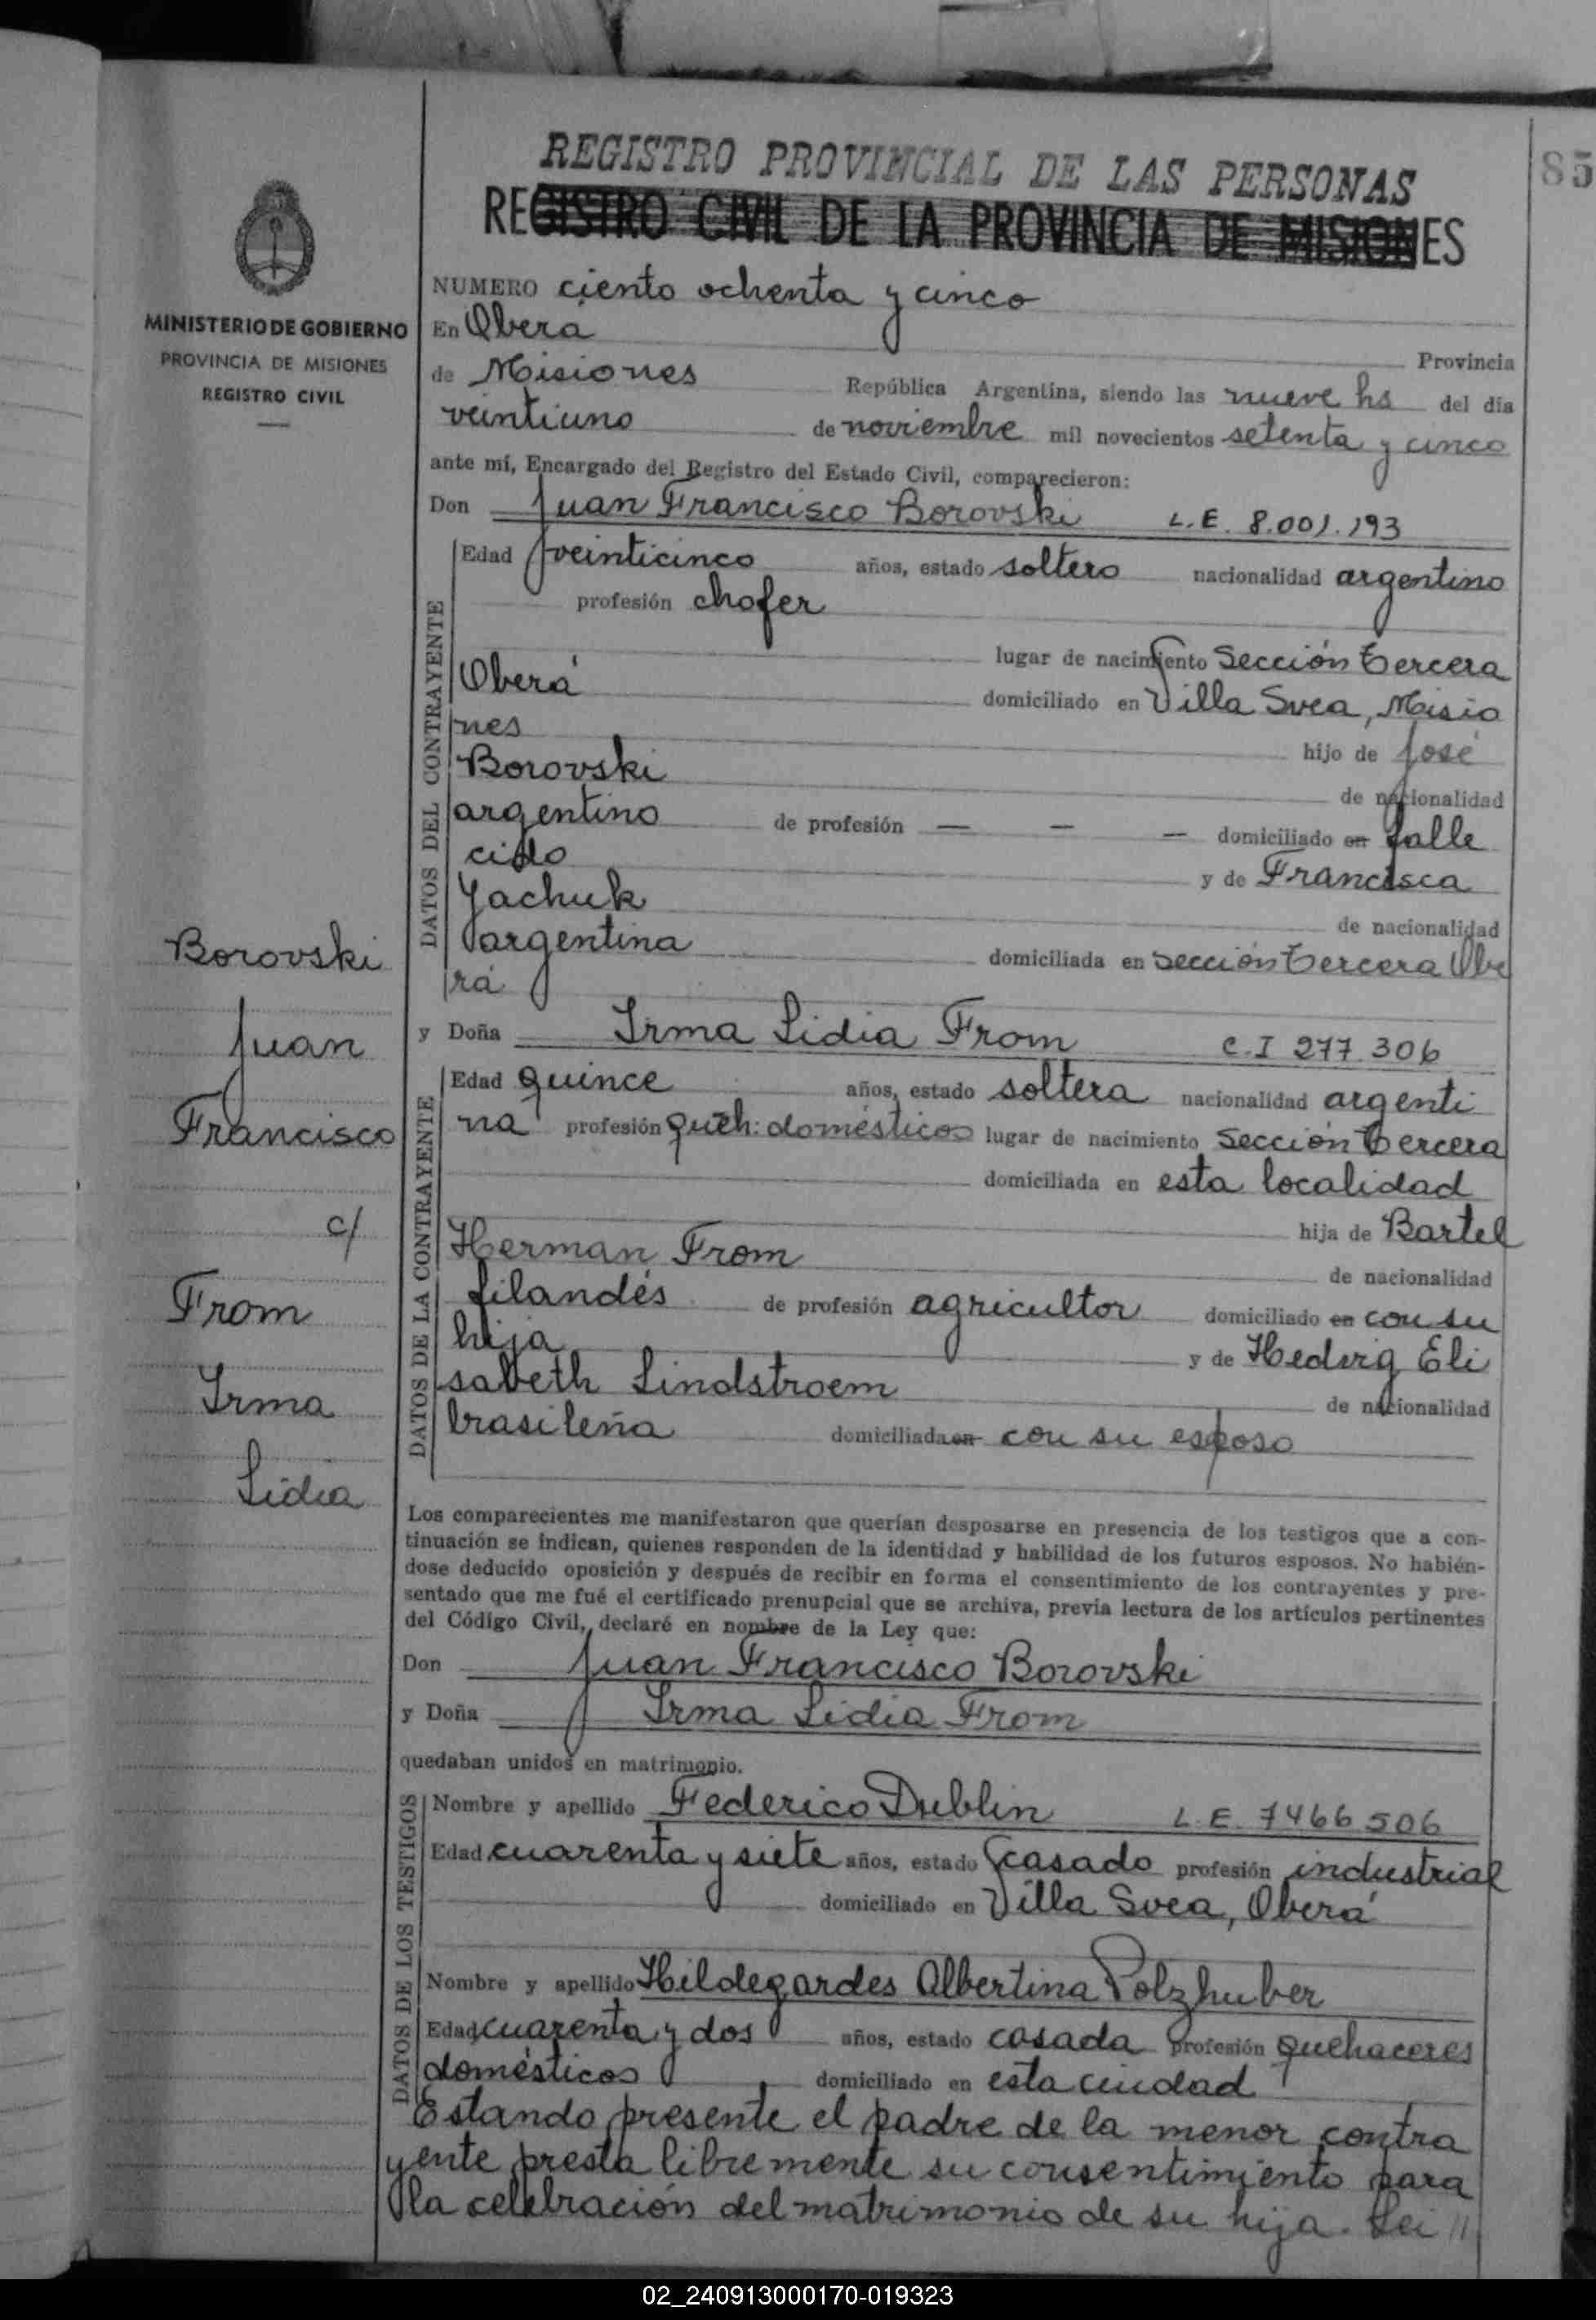 85
REGISTRO PROVINCIAL DE LAS PERSONAS
REGISTRO CIVIL DE LA PROVINCIA DE MISIONES
MINISTERIO DE GOBIERNO
PROVINCIA DE MISIONES
REGISTRO CIVIL
NUMERO ciento ochenta y cinco
En Oberá Provincia
de Misiones República Argentina, siendo las nueve hs del día
veintiuno de noviembre mil novecientos setenta y cinco
ante mí, Encargado del Registro del Estado Civil, comparecieron:
Don Juan Francisco Borovski L.E. 8.001.193
DATOS DEL CONTRAYENTE
Edad veinticinco años, estado soltero nacionalidad argentino
profesión chofer
lugar de nacimiento Sección Tercera
Oberá domiciliado en Villa Svea, Misio
nes hijo de José
Borovski de nacionalidad
argentino de profesión — — — domiciliado en falle
cido y de Francisca
Yachuk de nacionalidad
argentina domiciliada en Sección Tercera Obe
rá
y Doña Irma Lidia From C.I 277.306
DATOS DE LA CONTRAYENTE
Edad quince años, estado soltera nacionalidad argenti
na profesión queh: domésticos lugar de nacimiento Sección Tercera
domiciliada en esta localidad
hija de Bartel
Herman From de nacionalidad
filandés de profesión agricultor domiciliado en con su
hija y de Hedvig Eli
sabeth Lindstroem de nacionalidad
brasileña domiciliada en con su esposo
Borovski
Juan
Francisco
c/
From
Irma
Lidia
Los comparecientes me manifestaron que querían desposarse en presencia de los testigos que a con-
tinuación se indican, quienes responden de la identidad y habilidad de los futuros esposos. No habién-
dose deducido oposición y después de recibir en forma el consentimiento de los contrayentes y pre-
sentado que me fué el certificado prenupcial que se archiva, previa lectura de los artículos pertinentes
del Código Civil, declaré en nombre de la Ley que:
Don Juan Francisco Borovski
y Doña Irma Lidia From
quedaban unidos en matrimonio.
DATOS DE LOS TESTIGOS
Nombre y apellido Federico Dublin L.E. 7466506
Edad cuarenta y siete años, estado casado profesión industrial
domiciliado en Villa Svea, Oberá
Nombre y apellido Hildegardes Albertina Polzhuber
Edad cuarenta y dos años, estado casada profesión quehaceres
domésticos domiciliado en esta ciudad
Estando presente el padre de la menor contra
yente presta libremente su consentimiento para
la celebración del matrimonio de su hija. Lei //
02_240913000170-019323